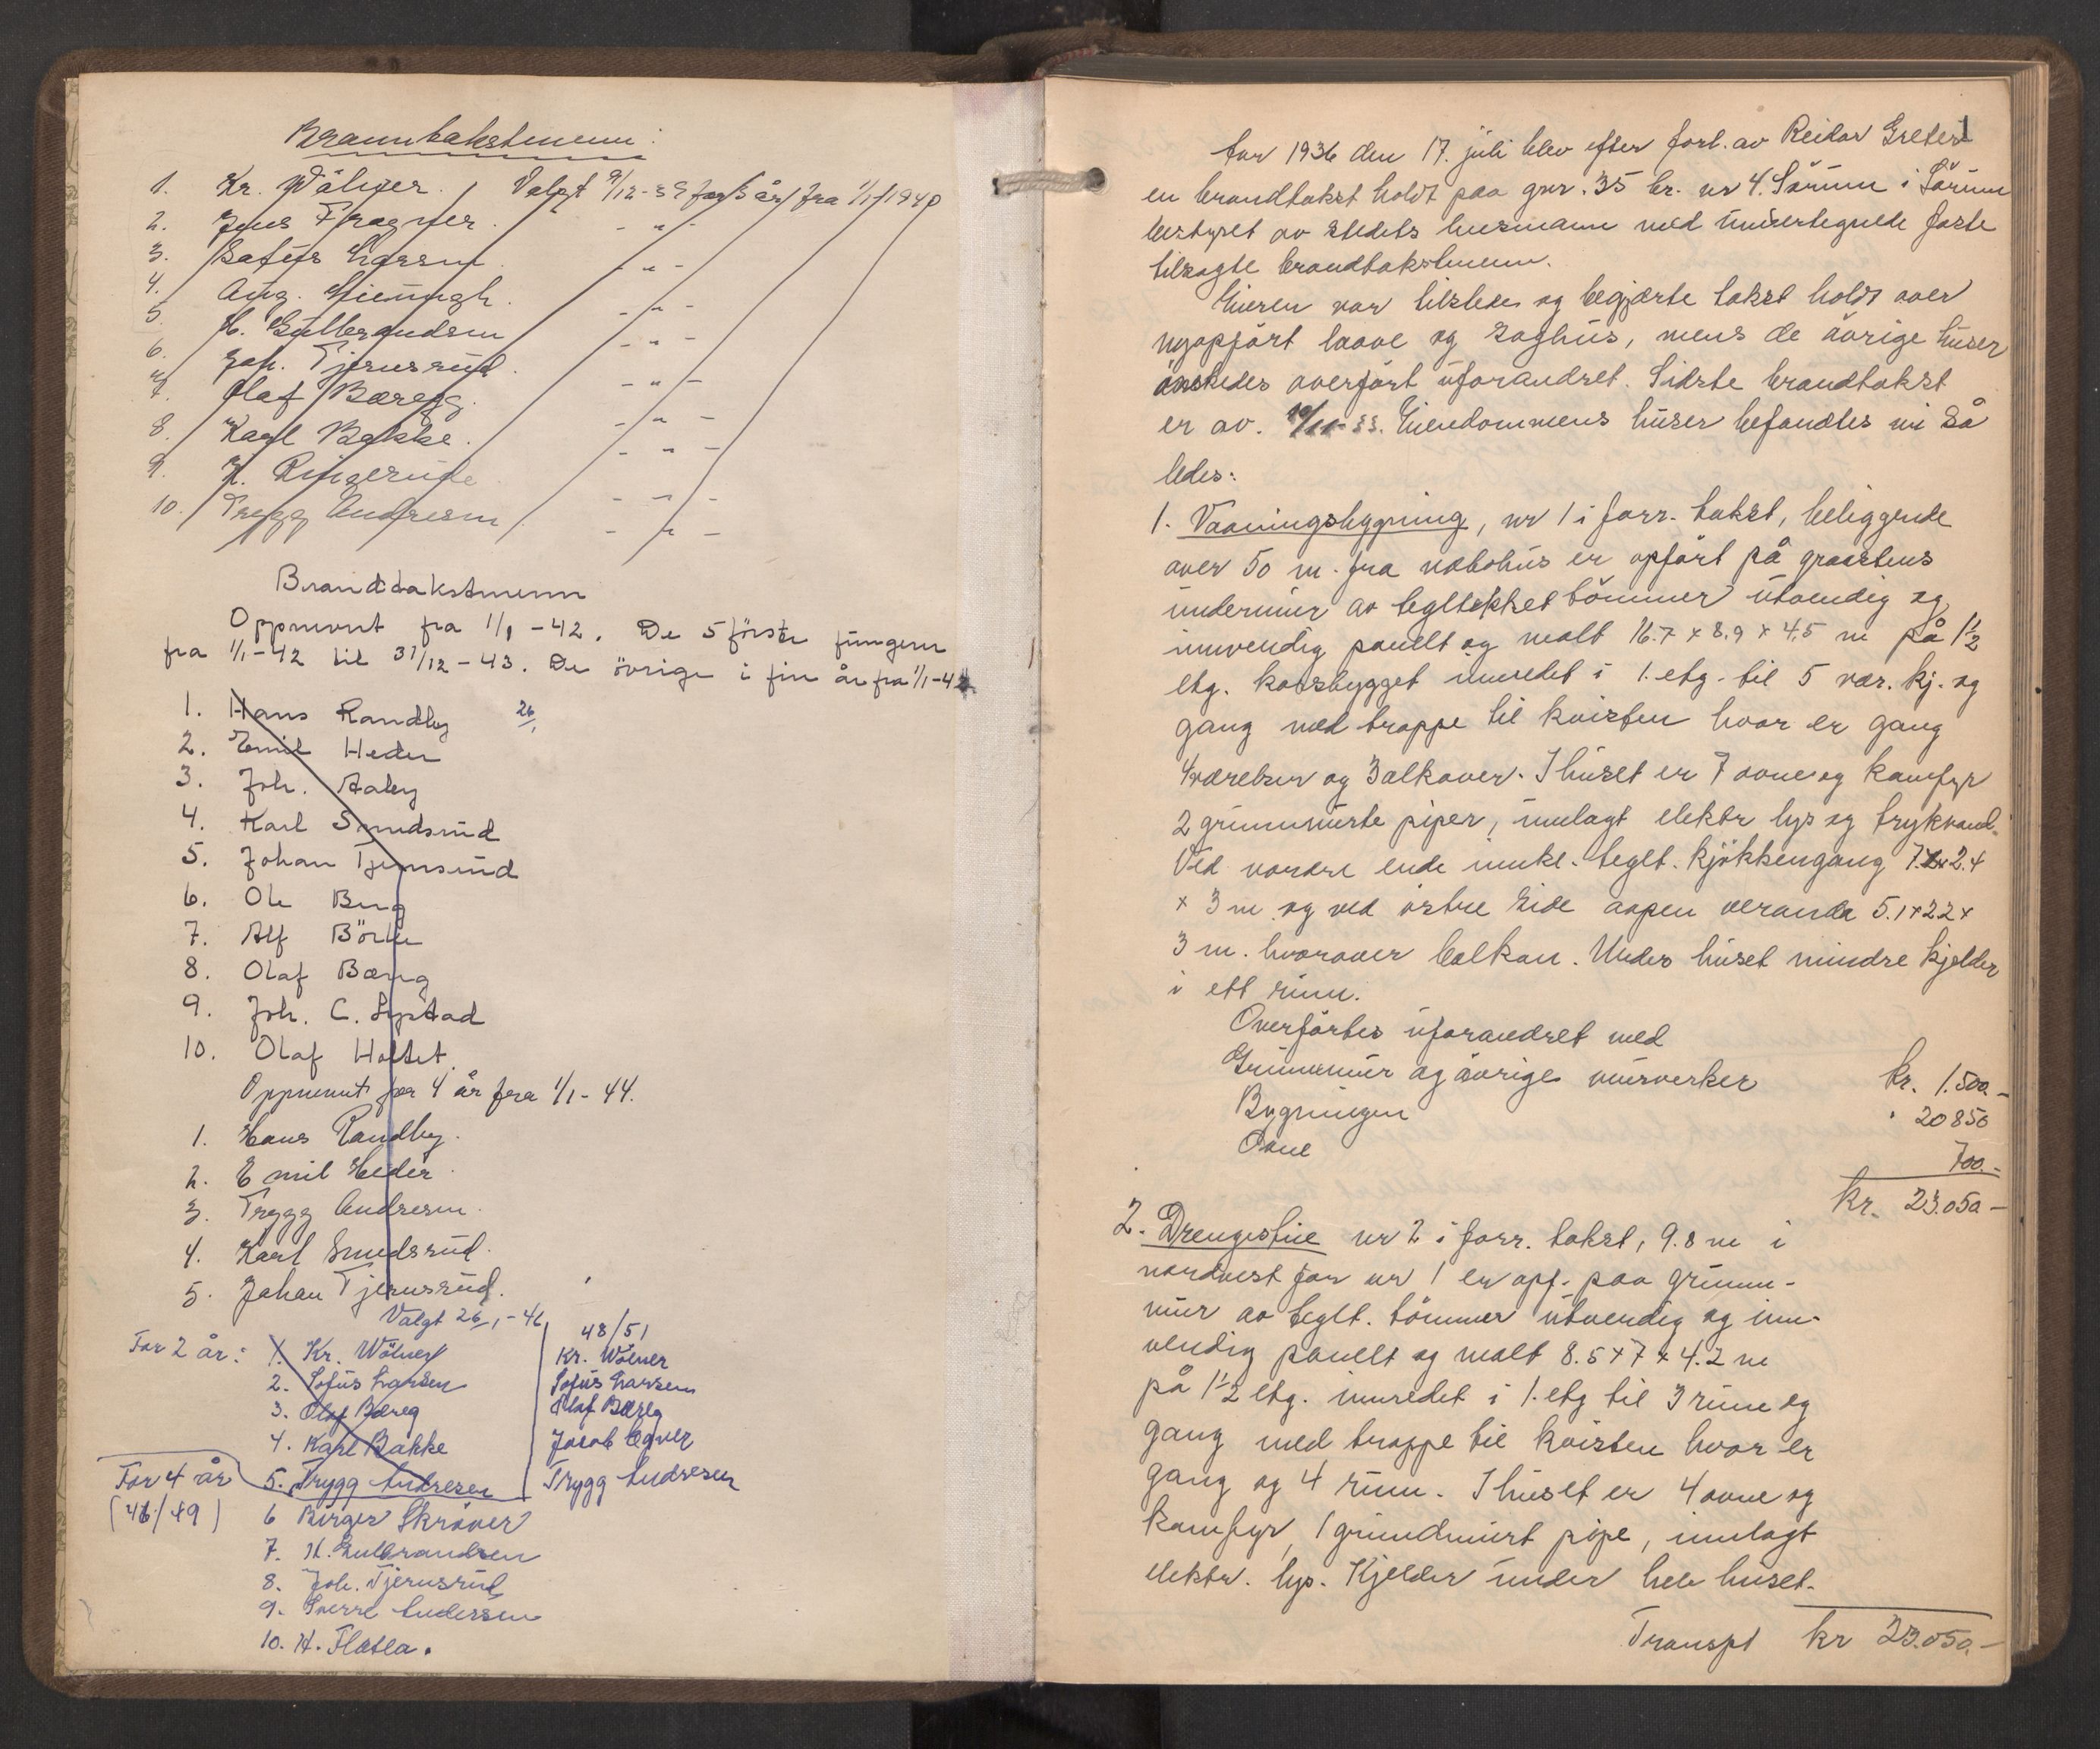 Branntakstmenn:
1. Kr. Wølner. Valgt 9/12-39 for 3 år fra 1/1 1940
2. Jens Fragner. - " -
3. Sofus Larsen. - " -
4. Aug. - " -
5. H. Gulbrandsen - " -
6. Joh. Tjernsrud. - " -
7. Olaf Bæreg. - " -
8. Karl Bakke. - " -
9. H. Ringerude - " -
10. Trygg Andresen. - " -
Brandtakstmenn
Oppnevnt fra 1/1-42. De 5 förste fungerer
fra 1/1-42 til 31/12-43. De övrige i fire år fra 1/1-42
1. Hans Randby 26/1
2. Emil Heder
3. Joh. Aaby
4. Karl Smedsrud
5. Johan Tjernsrud
6. Ole Berg
7. Alf Börke
8. Olaf Bæreg
9. Joh. C. Lystad
10. Olaf Holtet.
Oppnevnt for 4 år fra 1/1-44.
1. Hans Randby.
2. Emil Heder.
3. Trygg Andresen.
4. Karl Smedsrud.
5. Johan Tjernsrud.
Valgt 26/1-46
For 2 år: 1. Kr. Wölner
2. Sofus Larsen
3. Olaf Bæreg
4. Karl Bakke
For 4 år 5. Trygg Andresen
(46/49) 6 Birger Skröver
7. H. Gulbrandsen
8. Joh. Tjernsrud
9. Sverre Andersen
10. H. Flatla.
48/51
Kr. Wölner
Sofus Larsen
Olaf Bæreg
Jacob Egner
Trygg Andresen
1
Aar 1936 den 17. juli blev efter forl. av Reidar Greter
en brandtakst holdt paa gnr. 35 br. nr 4. Sörum i Sörum
bestyret av stedets lensmann med undertegnede faste
tilsagte brandtakstmenn.
Eieren var tilstede og begjærte takst holdt over
nyopfört laave og voghus, mens de övrige huser
önskedes overfört uforandret. Sidste brandtakst
er av. Eiendommens huser befandtes nu så
ledes:
1. Vaaningsbygning, nr 1 i forr. takst, beliggende
over 50 m. fra nabohus er opfört på graastens
undermur av tegltekket tömmer utvendig og
innvendig panelt og malt 16.7 x 8.9 x 4.5 m på 1 1/2
etg. korsbygget innredet i 1. etg. til 5 vær. kj. og
gang med trappe til kvisten hvor er gang
4 værelser og 3 alkover. I huset er 7 ovne og kamfyr
2 grunnmurte piper, innlagt elektr lys og trykvand.
Ved nordre ende innkl. teglt. kjökkengang 7. x 2.4
x 3 m og ved östre side aapen veranda 5.1 x 2.2 x
3 m. hvorover balkon. Under huset mindre kjelder
i ett rum.
Overförtes uforandret med
Grunnmur og övrige murverker kr. 1.500.-
Bygningen " 20850
Ovne 700.-
kr. 23.050-
2. Drengestue nr 2 i forr. takst, 9.8 m i
nordvest for nr 1 er opf. paa grunn-
mur av teglt. tömmer utvendig og inn-
vendig panelt og malt 8.5 x 7 x 4.2 m
på 1 1/2 etg. innredet i 1. etg til 3 rum og
gang med trappe til kvisten hvor er
gang og 4 rum. I huset er 4 ovne og
kamfyr, 1 grundmurt pipe, innlagt
elektr. lys. Kjelder under hele huset.
Transpt kr 23.050.-